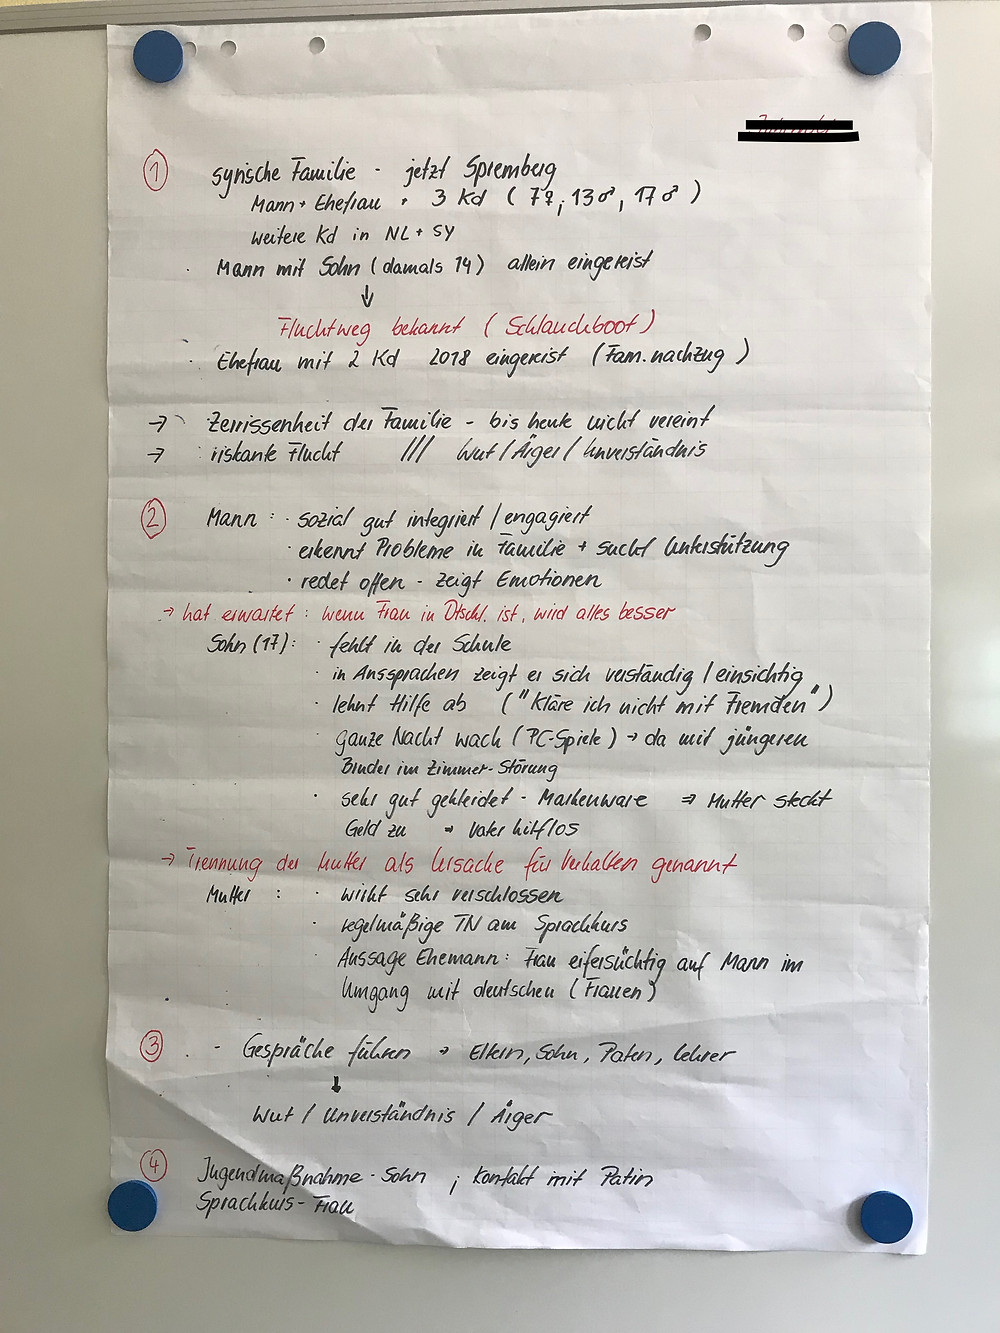 ① syrische Familie - jetzt Spremberg
Mann + Ehefrau + 3 Kd ( 7♀, 13♂, 17♂ )
weitere Kd in NL + SY
· Mann mit Sohn (damals 14) allein eingereist
↓
Fluchtweg bekannt ( Schlauchboot )
· Ehefrau mit 2 Kd 2018 eingereist (Fam.nachzug )
→ Zerrissenheit der Familie - bis heute nicht vereint
→ riskante Flucht /// Wut / Ärger / Unverständnis
② Mann : · sozial gut integriert / engagiert
· erkennt Probleme in Familie + sucht Unterstützung
· redet offen - zeigt Emotionen
→ hat erwartet : wenn Frau in Dtschl. ist, wird alles besser
Sohn (17) : · fehlt in der Schule
· in Aussprachen zeigt er sich verständig / einsichtig
· lehnt Hilfe ab ( "Kläre ich nicht mit Fremden" )
· ganze Nacht wach ( PC-Spiele ) → da mit jüngeren
Bruder im Zimmer - Störung
· sehr gut gekleidet - Markenware ⇒ Mutter steckt
Geld zu ⇒ Vater hilflos
→ Trennung der Mutter als Ursache für Verhalten genannt
Mutter : · wirkt sehr verschlossen
· regelmäßige TN am Sprachkurs
· Aussage Ehemann : Frau eifersüchtig auf Mann im
Umgang mit deutschen ( Frauen )
③ - Gespräche führen → Eltern, Sohn, Paten, Lehrer
↓
Wut / Unverständnis / Ärger
④ Jugendmaßnahme - Sohn ; Kontakt mit Patin
Sprachkurs - Frau